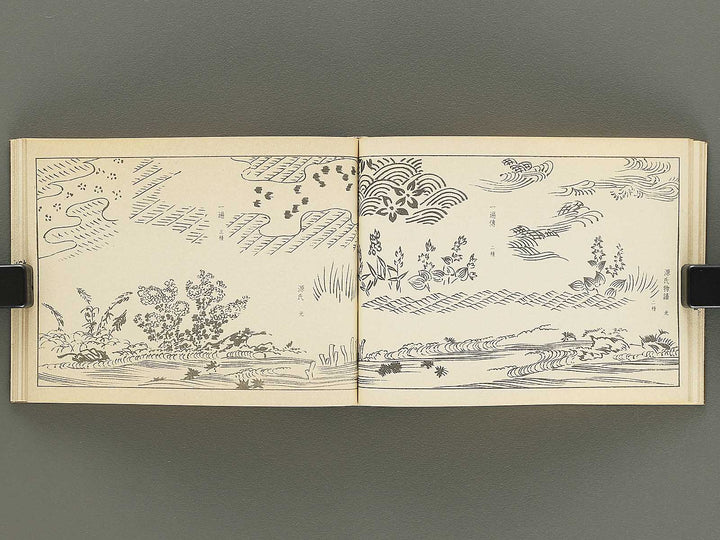 源氏物語 光
二種
一遍傳
二種
一遍
三種
源氏 光